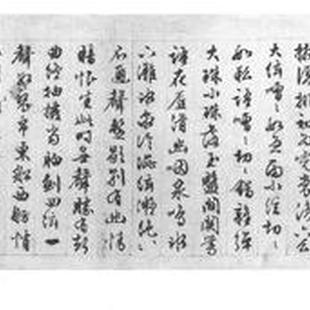 復挑初為霓裳後六么
大絃嘈〻如急雨小絃切〻
如私語嘈〻切〻錯雜彈
大珠小珠落玉盤間關鶯
語花底滑幽咽泉流氷
下灘氷泉冷澀絃凝絕〻
不通聲暫歇別有幽情
暗恨生此時無聲勝有聲
曲終抽撥當胸劃四絃一
聲如裂帛東船西舫悄